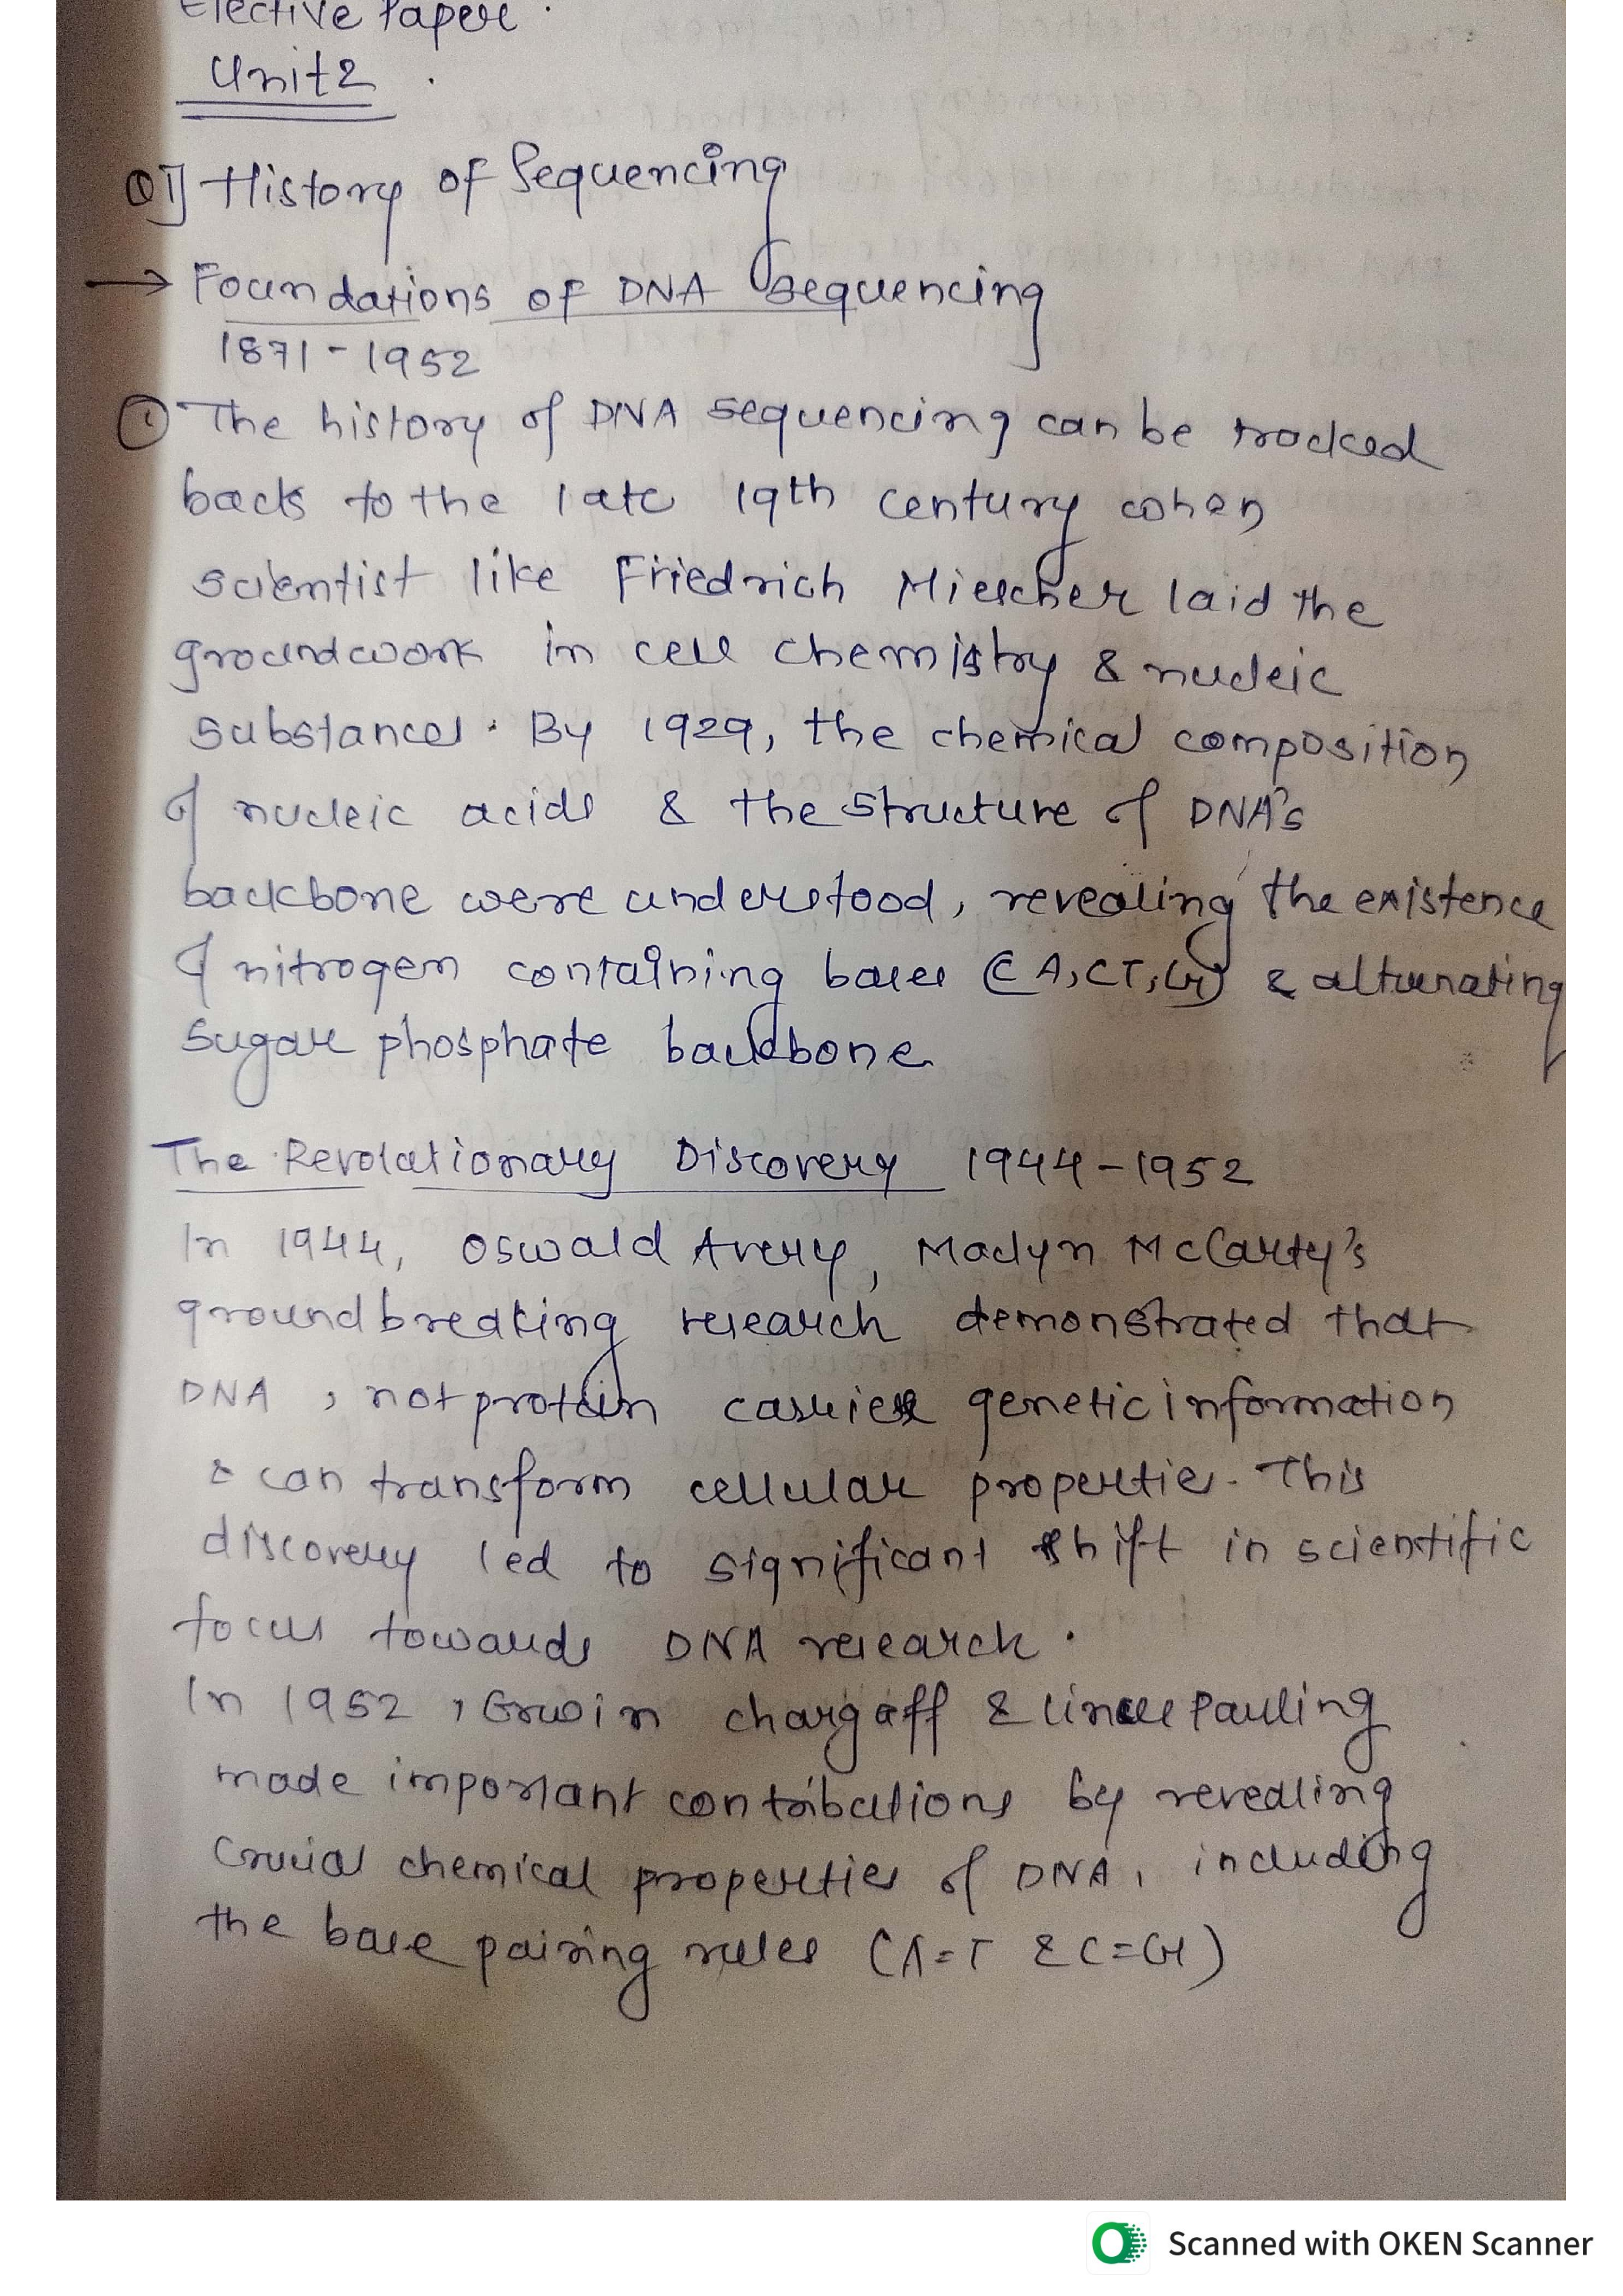 Elective Paper.
Unit 2.
Q1] History of Sequencing
→ Foundations of DNA sequencing
1871-1952
① The history of DNA sequencing can be tracked
back to the late 19th century when
scientist like Friedrich Miescher laid the
groundwork in cell chemistry & nucleic
substances. By 1929, the chemical composition
of nucleic acids & the structure of DNA's
backbone were understood, revealing the existence
of nitrogen containing bases (A,CT,G) & alternating
sugar phosphate backbone
The Revolutionary Discovery 1944-1952
In 1944, Oswald Avery, Maclyn McCarty's
groundbreaking research demonstrated that
DNA, not protein carries genetic information
& can transform cellular properties. This
discovery led to significant shift in scientific
focus towards DNA research.
In 1952, Erwin chargaff & Pauling
made important contributions by revealing
crucial chemical properties of DNA, including
the base pairing rules (A=T & C=G)
Scanned with OKEN Scanner